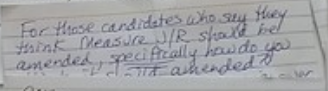 For those candidates who say they
think Measure J/R should be
amended, specifically how do you
amended?